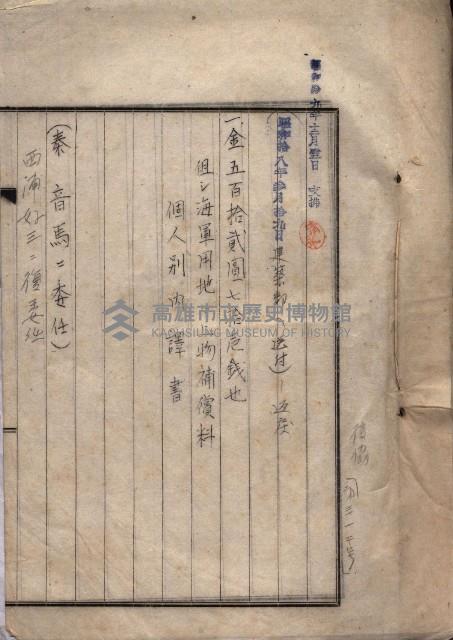 昭和拾九年十二月五日 支拂
昭和拾八年 月拾九日 建築部へ送付 返戻
一、金五百拾貳圓七拾 錢也
但シ海軍用地上物補償料
個人別内譯書
(秦音馬ニ委任)
西浦好三ニ復委任
高雄市立歷史博物館
KAOHSIUNG MUSEUM OF HISTORY